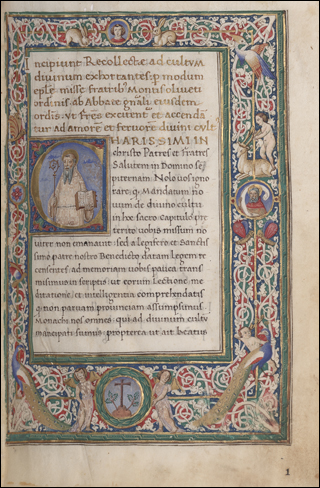 ncipiunt Recollectae ad cultum
divinum exhortantes p modum
eplae misse fratrib Montisoliveti
ordinis ab Abbate gnali eiusdem
ordinis. Ut frēs excitent et accendā
tur ad amore et fervore divini cult
HARISSIMI IN
christo Patres et Fratres
Salutem in Domino sē
piternam. Nolo vos igno
rare q Mandatum no
uum de divino cultu
in hoc sacro capitulo pre
terito vobis missum no
viter non emanavit. sed a legifero et Sancitis
simo patre nostro Benedicto datam legem re
censentes. ad memoriam vobis pauca trans
misimus in scriptis. ut eorum lectione. me
ditatione. et intelligentia comprehendatis
q non parvam provinciam assumpsimus
Monachi nos omnes. qui ad divinum cultu
mancipati sumus. propterea ut ait beatus
1